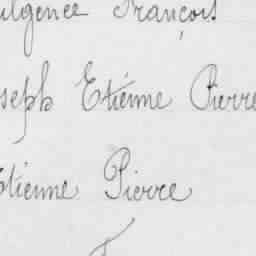 ulgence François
seph Etienne Pierre
Etienne Pierre